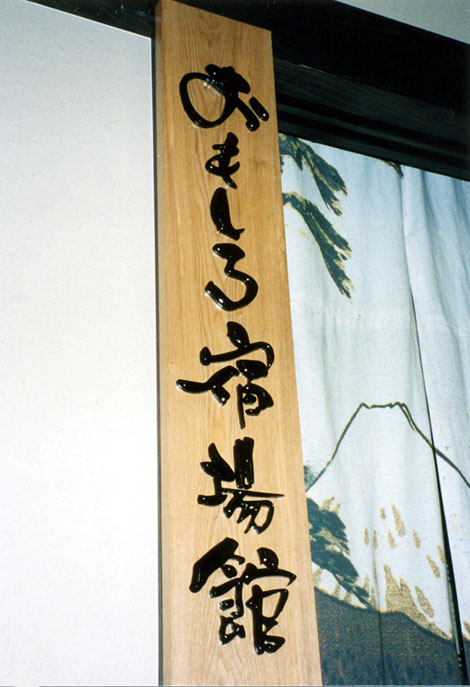 おもしろ宿場館